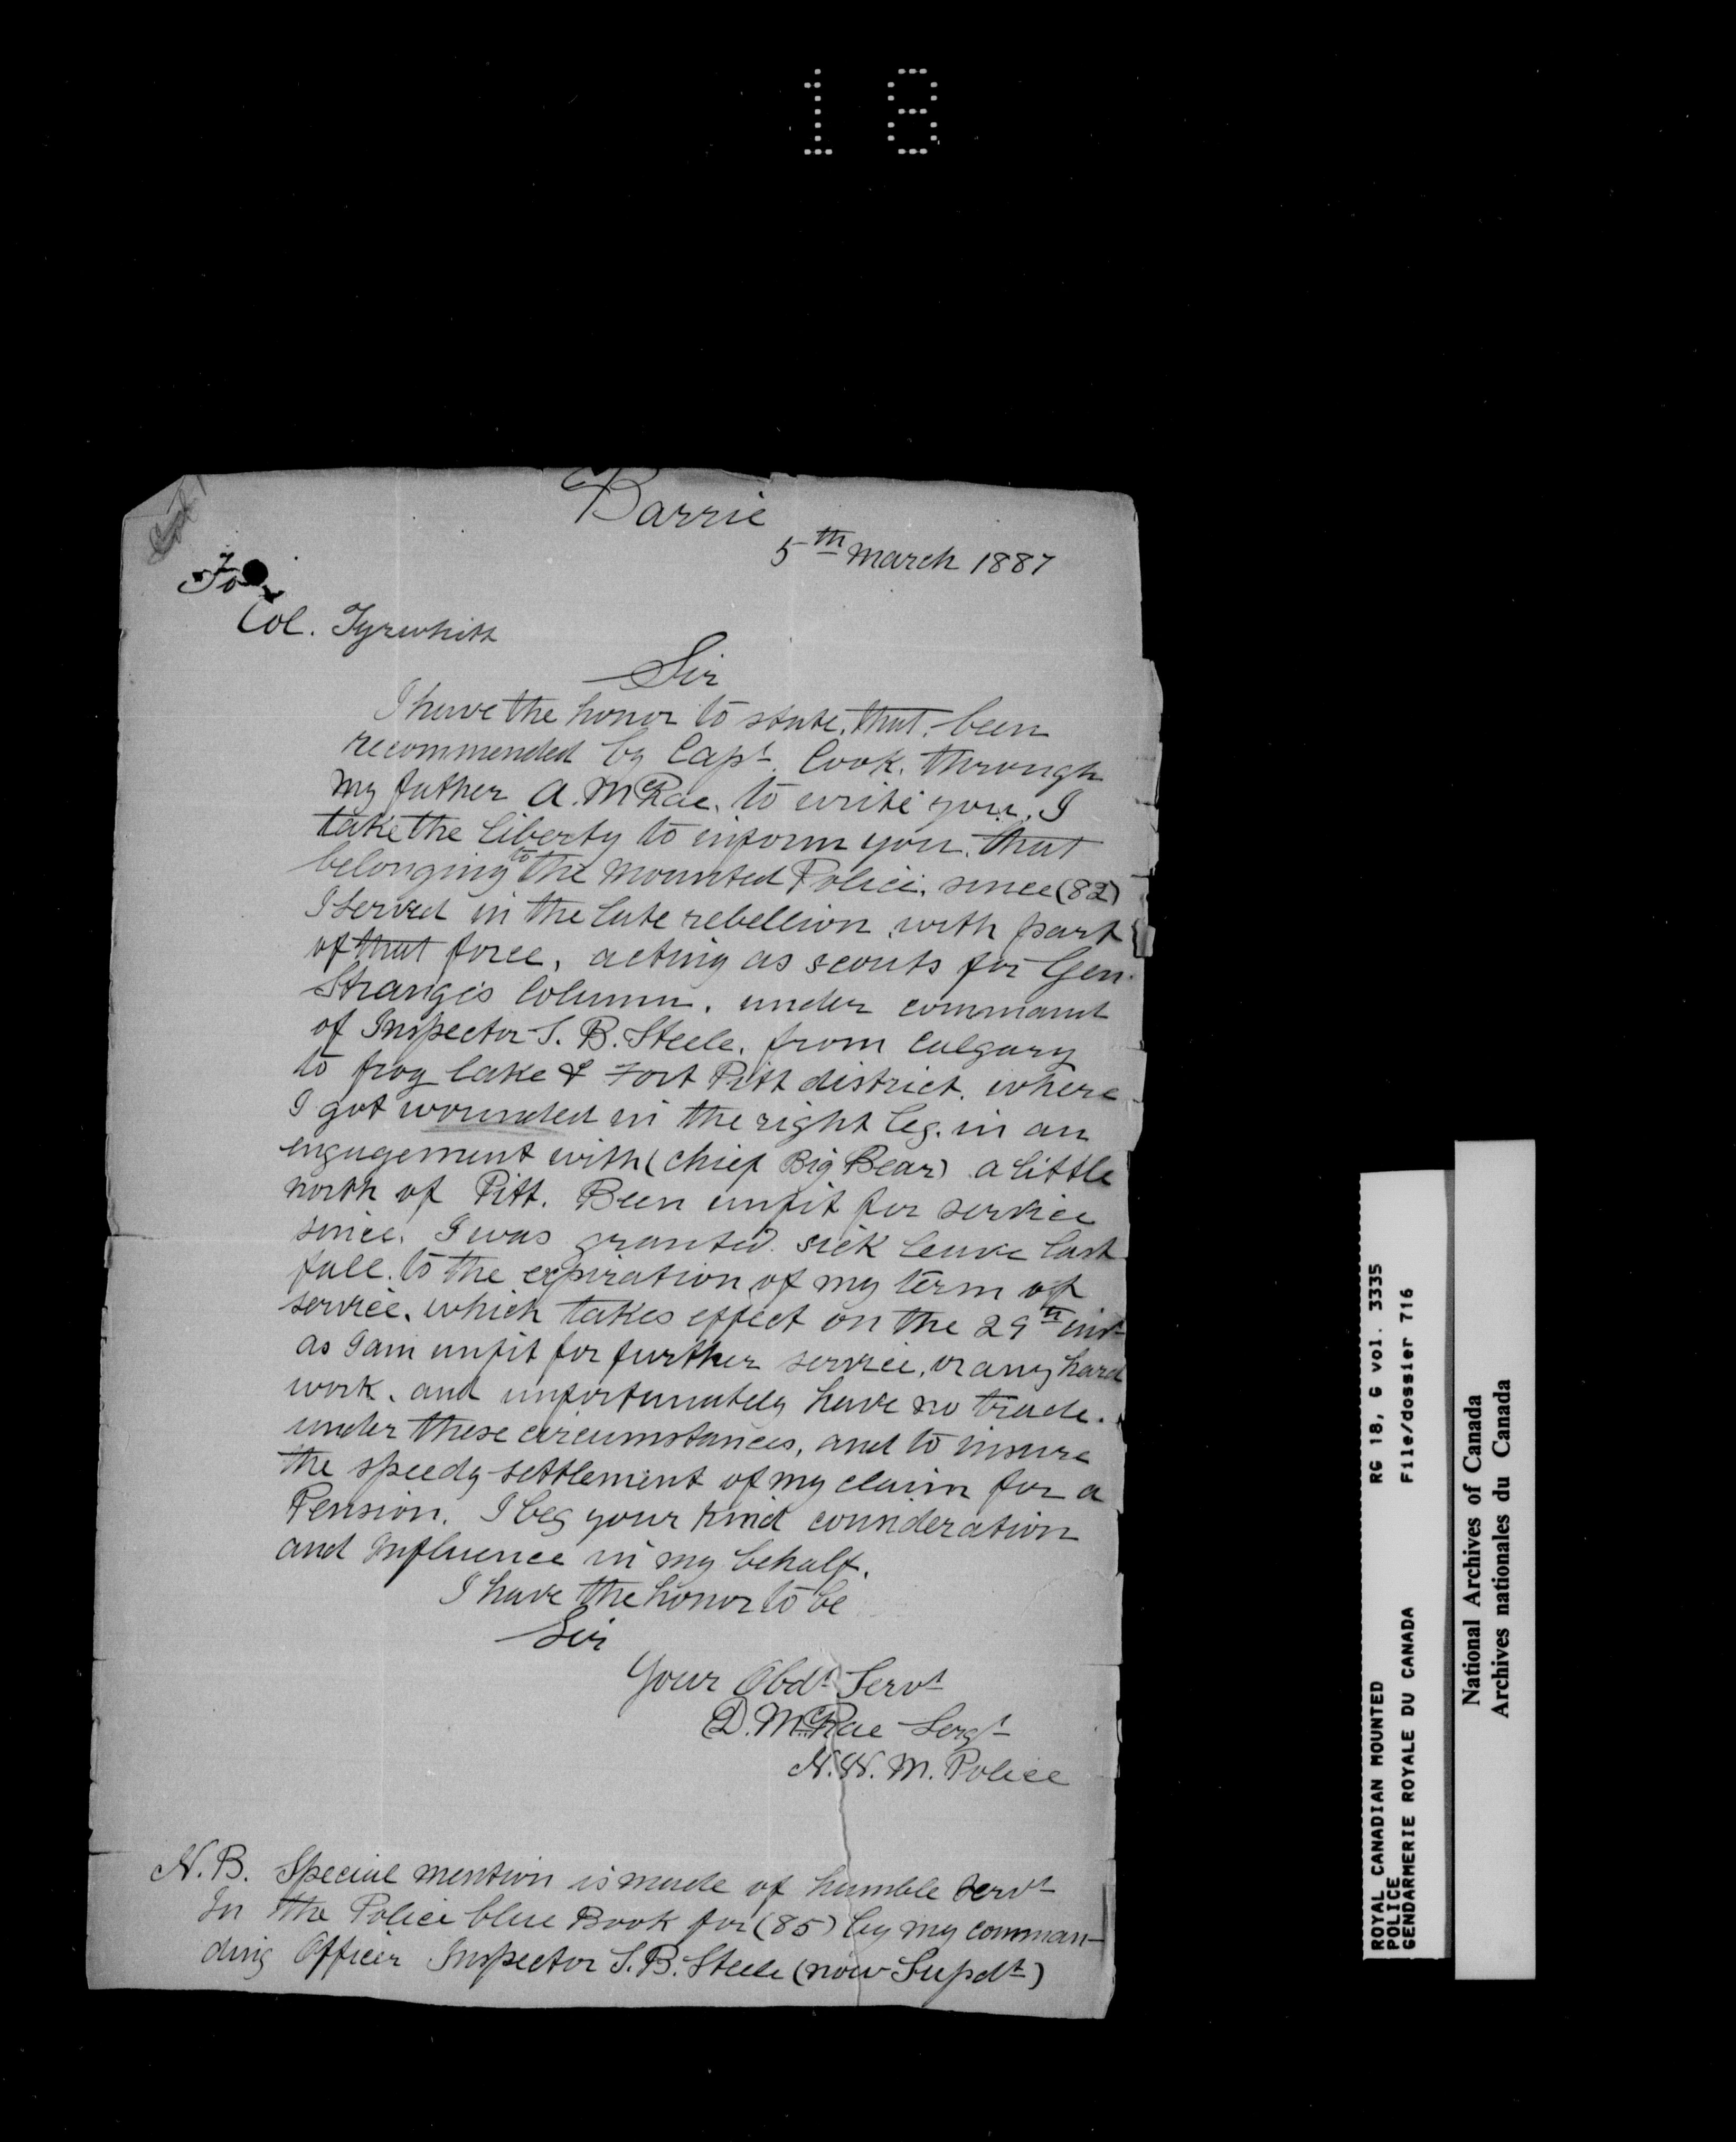 18
Barrie
5th March 1887
To
Col. Tyrwhitt
Sir
I have the honor to state, that, been
recommended by Capt. Cook, through
my father A. McRae, to write you, I
take the liberty to inform you, that
belonging to the Mounted Police, since (82)
I served in the late rebellion, with part
of that force, acting as scouts for Gen.
Strange's Column, under command
of Inspector S. B. Steele, from Calgary
to frog lake & Fort Pitt district, where
I got wounded in the right leg, in an
engagement with (chief Big Bear) a little
north of Pitt. Been unfit for service
since, I was granted sick leave last
fall, to the expiration of my term of
service, which takes effect on the 29th inst
as I am unfit for further service, or any hard
work, and unfortunately have no trade.
under these circumstances, and to insure
the speedy settlement of my claim for a
Pension. I beg your kind consideration
and Influence in my behalf.
I have the honor to be
Sir
Your Obdt Servt
D. McRae Sergt
N. W. M. Police
N.B. Special mention is made of humble servt
In the Police blue Book for (85) by my comman-
ding Officer Inspector S. B. Steele (now Supdt)
ROYAL CANADIAN MOUNTED RG 18, G vol. 3335
POLICE
GENDARMERIE ROYALE DU CANADA File/dossier 716
National Archives of Canada
Archives nationales du Canada